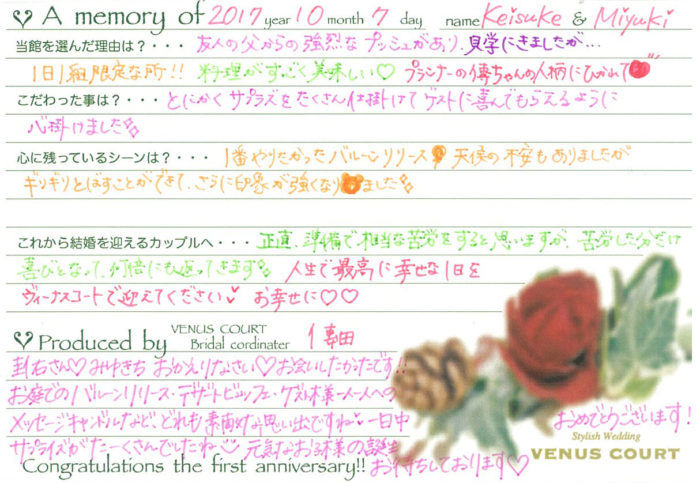 A memory of 2017 year 10 month 7 day name Keisuke & Miyuki
当館を選んだ理由は?・・・ 友人の父からの強烈なプッシュがあり、見学にきましたが…
1日1組限定な所!! 料理がすごく美味しい♡ プランナーの傳ちゃんの人柄にひかれて
こだわった事は?・・・ とにかくサプライズをたくさん仕掛けてゲストに喜んでもらえるように
心掛けました
心に残っているシーンは?・・・ 1番やりたかったバルーンリリース 天候の不安もありましたが
ギリギリとばすことができて、さらに印象が強くなりました
これから結婚を迎えるカップルへ・・・ 正直、準備で相当な苦労をすると思いますが、苦労した分だけ
喜びとなって、何倍にも返ってきます 人生で最高に幸せな1日を
ヴィーナスコートで迎えてください お幸せに♡♡
Produced by VENUS COURT Bridal cordinater 傳田
さん♡みゆきち おかえりなさい♡お会いしたかったです!!
お庭でのバルーンリリース・デザートビュッフェ・ゲスト様一人一人への
メッセージキャンドルなど、どれも素敵な思い出ですね 一日中
サプライズがたーくさんでしたね 元気なお子様の誕生
お待ちしております♡
おめでとうございます!
Congratulations the first anniversary!!
Stylish Wedding
VENUS COURT